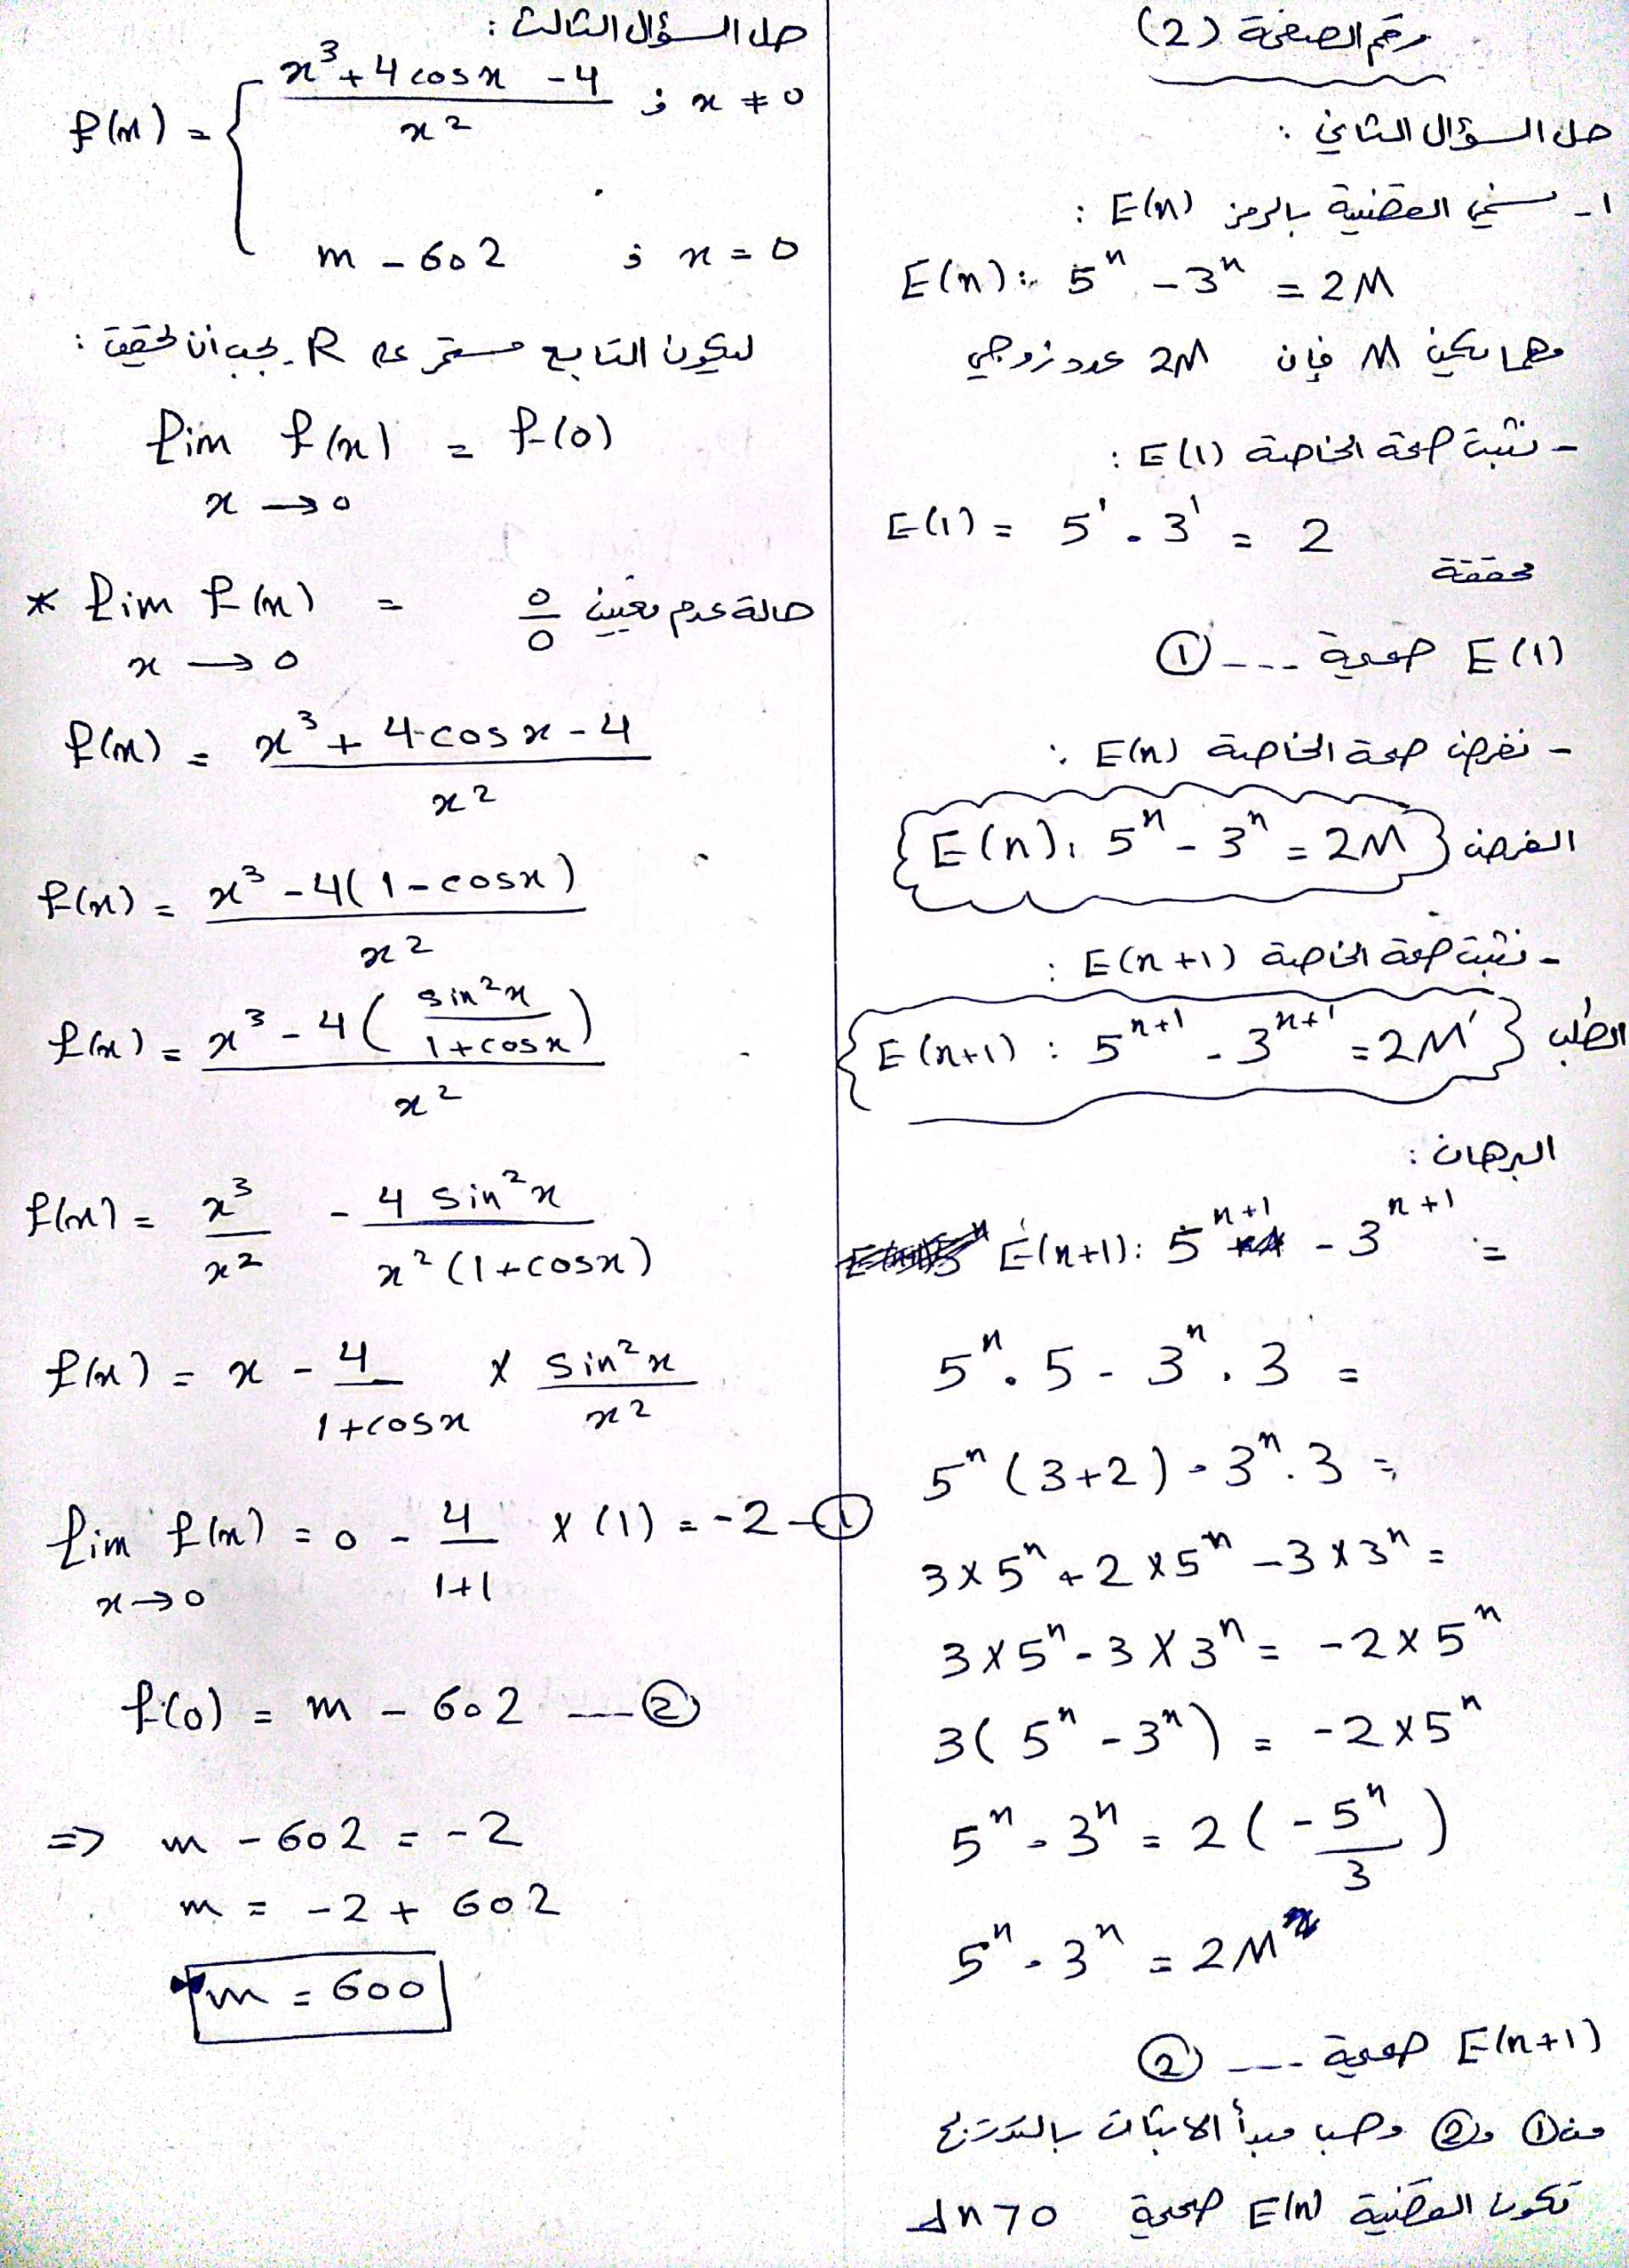 رقم الصفحة (2)
حل السؤال الثاني :
1- نسمي القضية بالرمز E(n) :
E(n): 5ⁿ - 3ⁿ = 2M
مهما يكن M فإن 2M عدد زوجي
- نثبت صحة الخاصة E(1) :
E(1) = 5¹ - 3¹ = 2
محققة
E(1) صحيحة --- ①
- نفرض صحة الخاصة E(n) :
الفرض { E(n): 5ⁿ - 3ⁿ = 2M }
- نثبت صحة الخاصة E(n+1) :
الطلب { E(n+1) : 5ⁿ⁺¹ - 3ⁿ⁺¹ = 2M' }
البرهان :
E(n+1): 5ⁿ⁺¹ - 3ⁿ⁺¹ =
5ⁿ . 5 - 3ⁿ . 3 =
5ⁿ (3+2) - 3ⁿ . 3 =
3×5ⁿ + 2×5ⁿ - 3×3ⁿ =
3×5ⁿ - 3×3ⁿ = -2×5ⁿ
3( 5ⁿ - 3ⁿ ) = -2×5ⁿ
5ⁿ - 3ⁿ = 2 ( -5ⁿ / 3 )
5ⁿ - 3ⁿ = 2M
E(n+1) صحيحة --- ②
من ① و ② وحسب مبدأ الاثبات بالتدريج
تكون القضية E(n) صحيحة n>0
حل السؤال الثالث :
f(x) = { (x³ + 4cosx - 4) / x² ; x ≠ 0
m - 602 ; x = 0
ليكون التابع مستمر على R يجب ان يحقق :
lim f(x) = f(0)
x → 0
* lim f(x) = 0/0 حالة عدم تعيين
x → 0
f(x) = (x³ + 4cosx - 4) / x²
f(x) = (x³ - 4(1 - cosx)) / x²
f(x) = (x³ - 4( sin²x / (1+cosx) )) / x²
f(x) = x³ / x² - 4 sin²x / x²(1+cosx)
f(x) = x - 4 / (1+cosx) × sin²x / x²
lim f(x) = 0 - 4 / (1+1) × (1) = -2 - ①
x→0
f(0) = m - 602 --- ②
=> m - 602 = -2
m = -2 + 602
m = 600